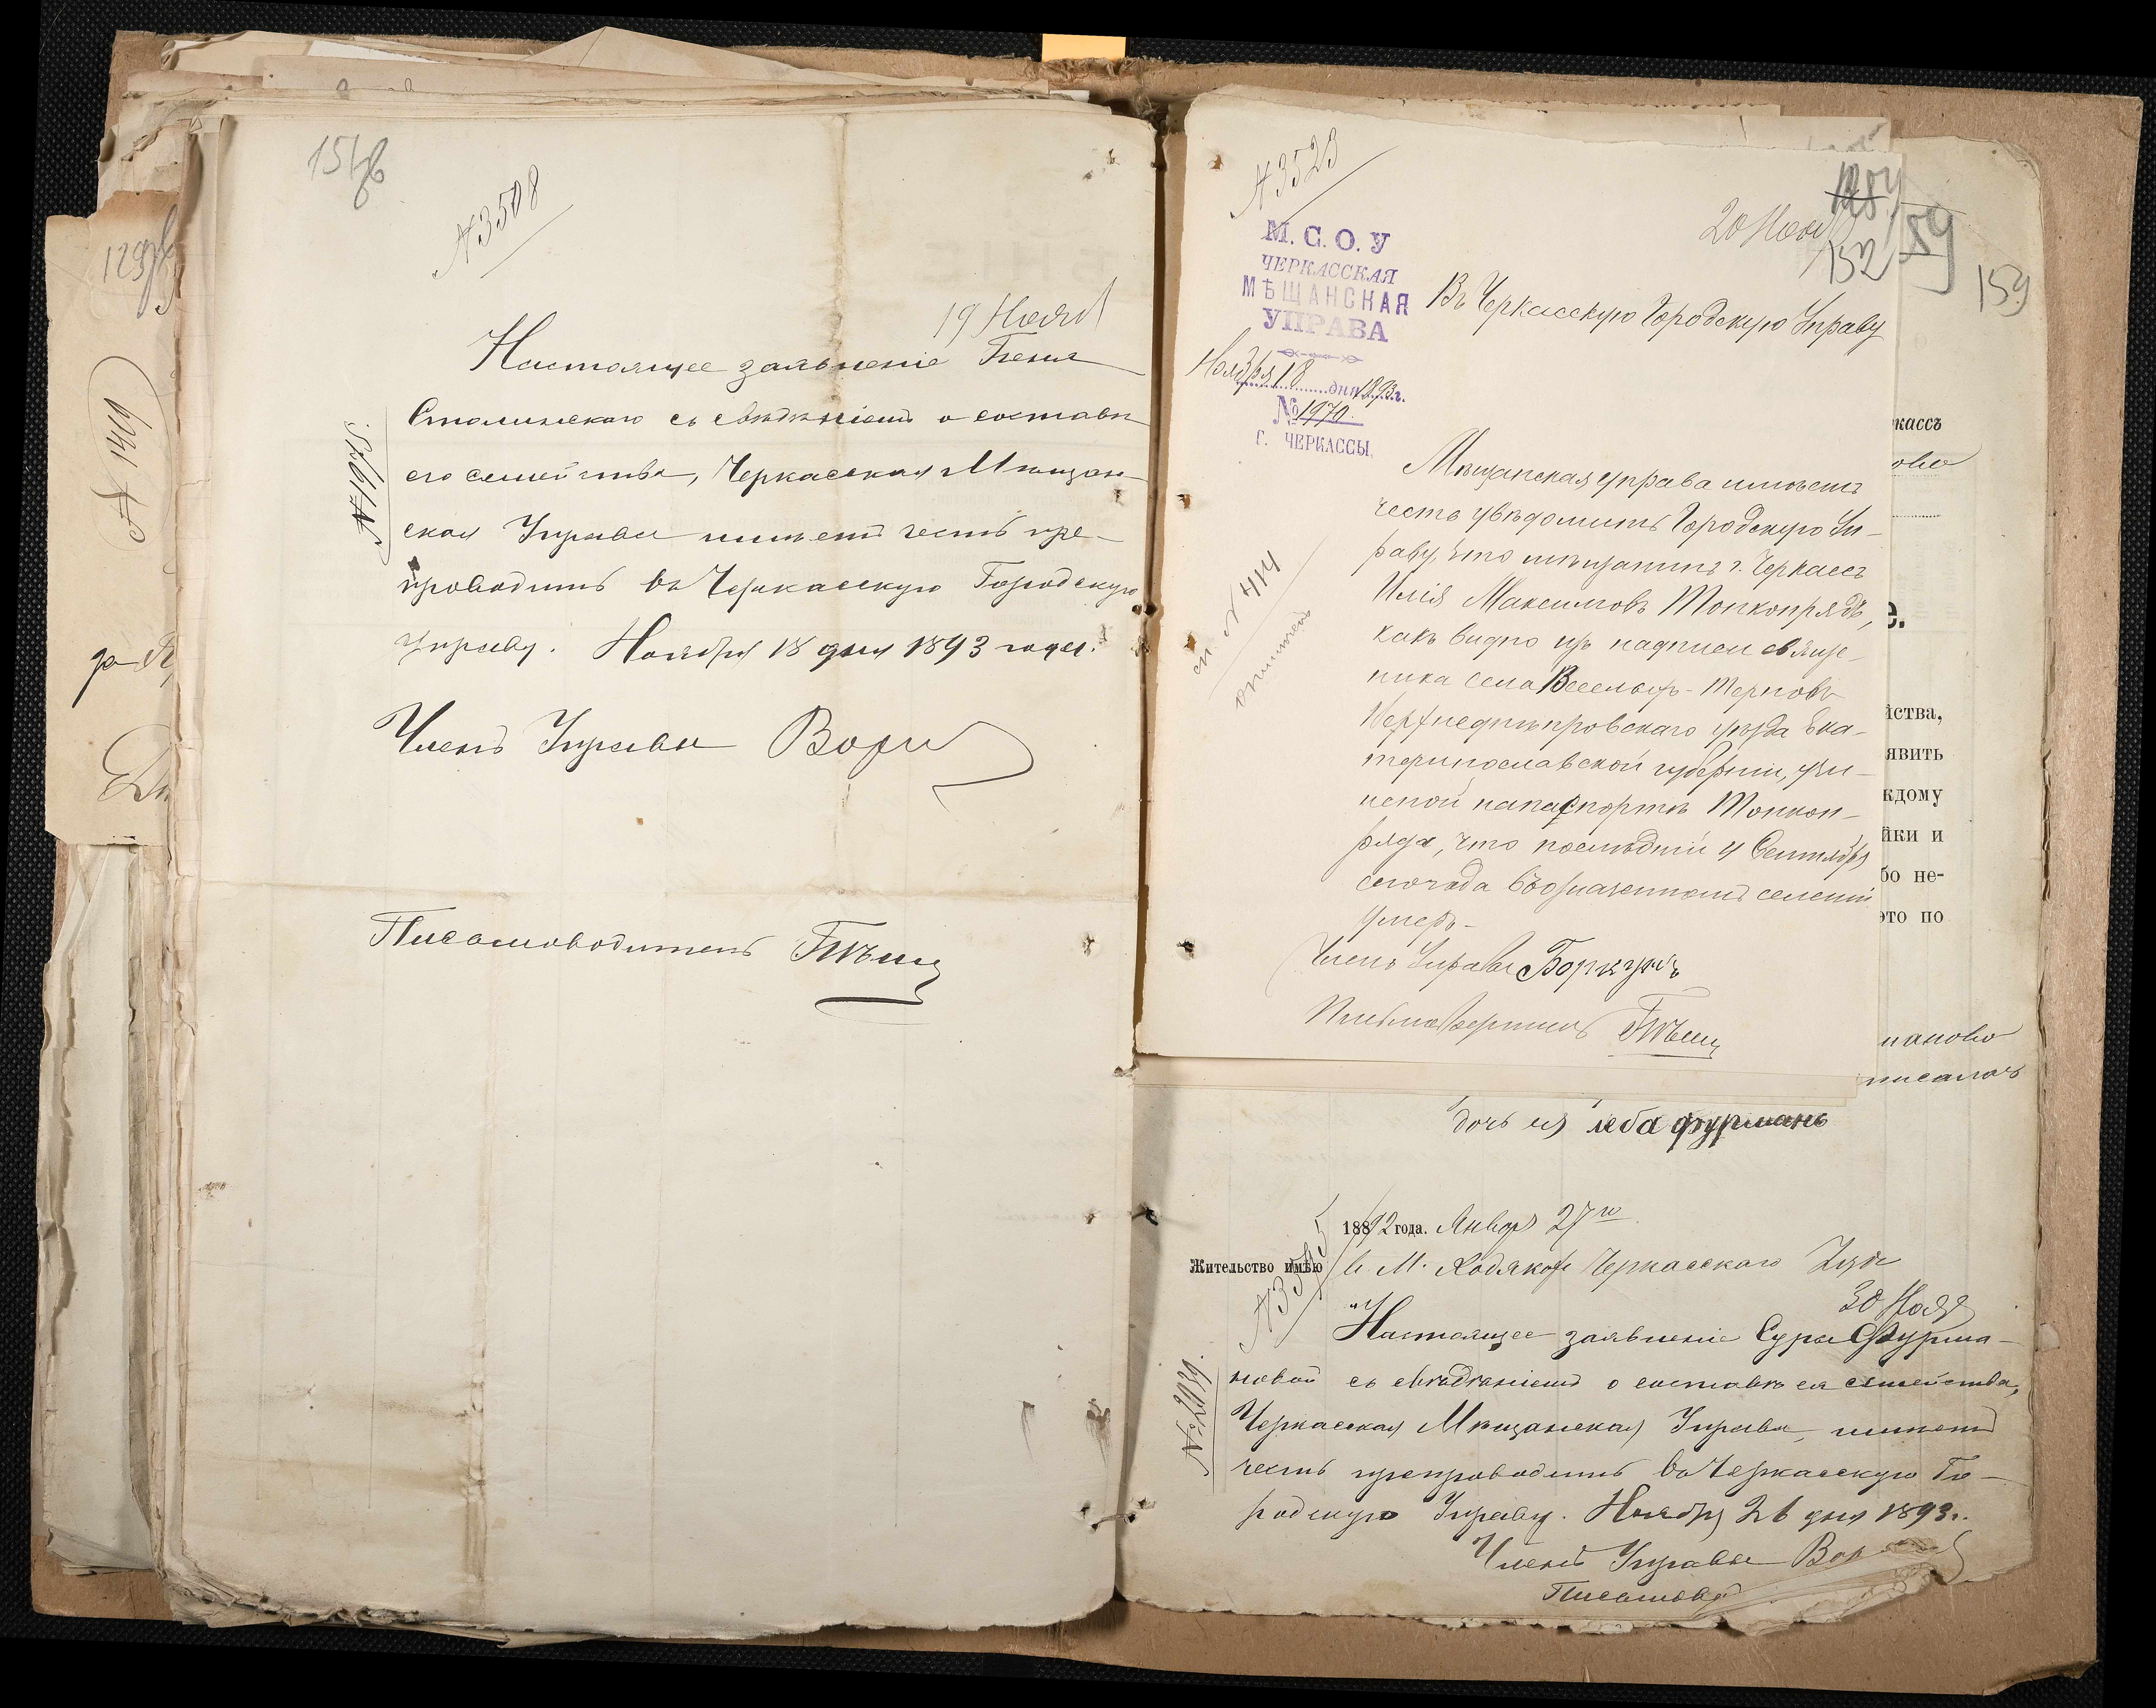 № 3508
19 Нояб
Настоящее заявленіе Беня
Смолинскаго съ свѣдѣніемъ о составѣ
его семейства, Черкасская Мѣщан-
ская Управа имѣетъ честь пре-
проводить въ Черкасскую Городскую
Управу. Ноября 18 дня 1893 года.
Членъ Управы
Письмоводитель
№ 1410
№ 3523
20 Нояб
152
59
159
М. С. О. У
ЧЕРКАССКАЯ
МѢЩАНСКАЯ
УПРАВА
Ноября 18 дня 1893 г.
№ 1970.
Г. ЧЕРКАССЫ.
Въ Черкасскую Городскую Управу
Мѣщанская управа имѣетъ
честь увѣдомить Городскую Уп-
раву, что мѣщанинъ г. Черкассъ
Илія Максимовъ Тонкопрядъ,
какъ видно изъ надписи священ-
ника села Веселыхъ-Терновъ
Верхнеднѣпровскаго уѣзда Ека-
теринославской губерніи, учи-
неной на паспортѣ Тонкоп-
ряда, что послѣдній 4 Сентября
сего года въ означенномъ селеніи
умеръ-
Членъ Управы
№ 414
кассъ
йства,
явить
кдому
йки и
бо не-
это по
дочь ея леба фурмань
1892 года. Январ 27го
Жительство имѣю в М. Ходяковѣ Черкасскаго
30 Нояб
Настоящее заявленіе Суры Фурма-
новой съ свѣдѣніемъ о составѣ ея семейства,
Черкасская Мѣщанская Управа, имѣетъ
честь препроводить въ Черкасскую Го-
родскую Управу. Ноября 26 дня 1893 г.
Членъ Управы
Письмовод